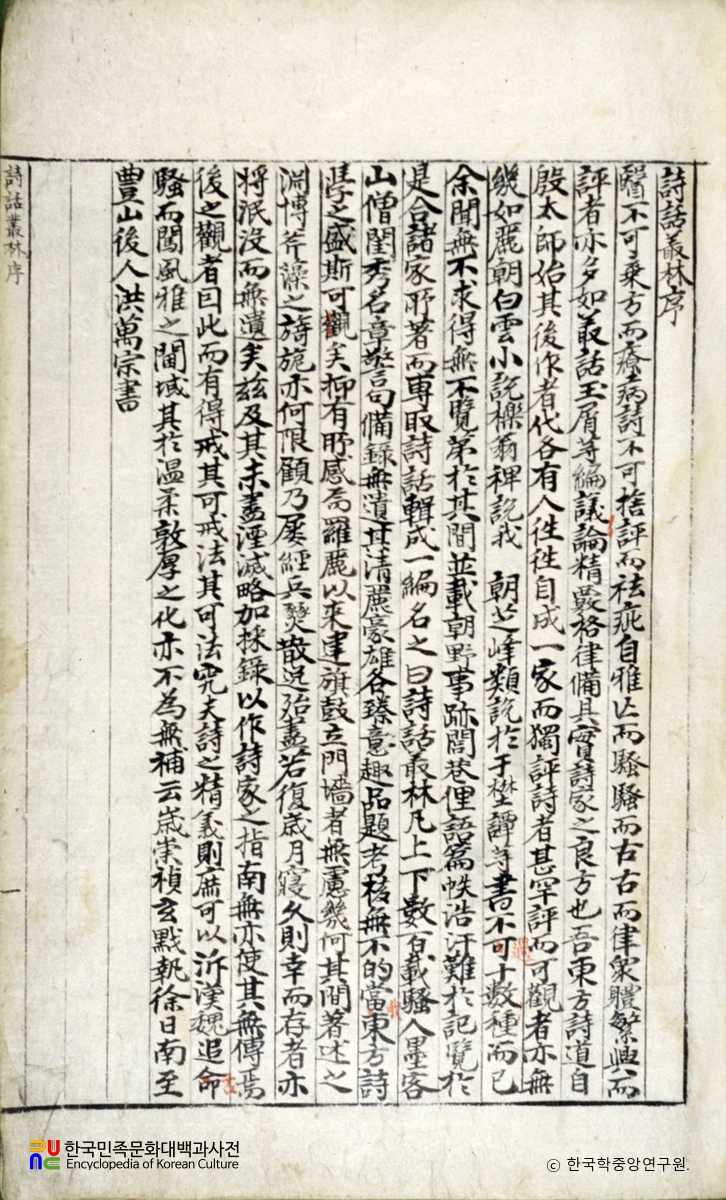 詩話叢林序
醫不可棄方而療病詩不可捨評而祛疵自雅亡而騷騷而古古而律衆體繁興而
評者亦多如叢話玉屑等編議論精嚴格律備具實詩家之良方也吾東方詩道自
殷太師始其後作者代各有人徃徃自成一家而獨評詩者甚罕評而可觀者亦無
幾如麗朝白雲小說櫟翁稗說我 朝芝峰類說於于樊譚等書不可十數種而已
余聞無不求得無不覽第於其間並載朝野事跡閭巷俚語篇帙浩汗難於記覽於
是合諸家所著而專取詩話輯成一編名之曰詩話叢林凡上下數百載騷人墨客
山僧閨秀名章警句備錄無遺其清麗豪雄各臻意趣品題考核無不的當東方詩
學之盛斯可觀矣抑有所感焉羅麗以來建旗鼓立門墻者無慮幾何其間著述之
淵博斧藻之旖旎亦何限顧乃屢經兵燹散逸殆盡若復歲月寢久則幸而存者亦
將泯没而無遺矣玆及其未盡湮滅略加採錄以作詩家之指南無亦使其無傳焉
後之觀者因此而有得戒其可戒法其可法究夫詩之精義則庶可以泝漢魏追命
騷而闖風雅之閫域其於温柔敦厚之化亦不為無補云歲崇禎玄黓執徐日南至
豊山後人洪萬宗書
詩話叢林序
한국민족문화대백과사전
Encyclopedia of Korean Culture
ⓒ 한국학중앙연구원.